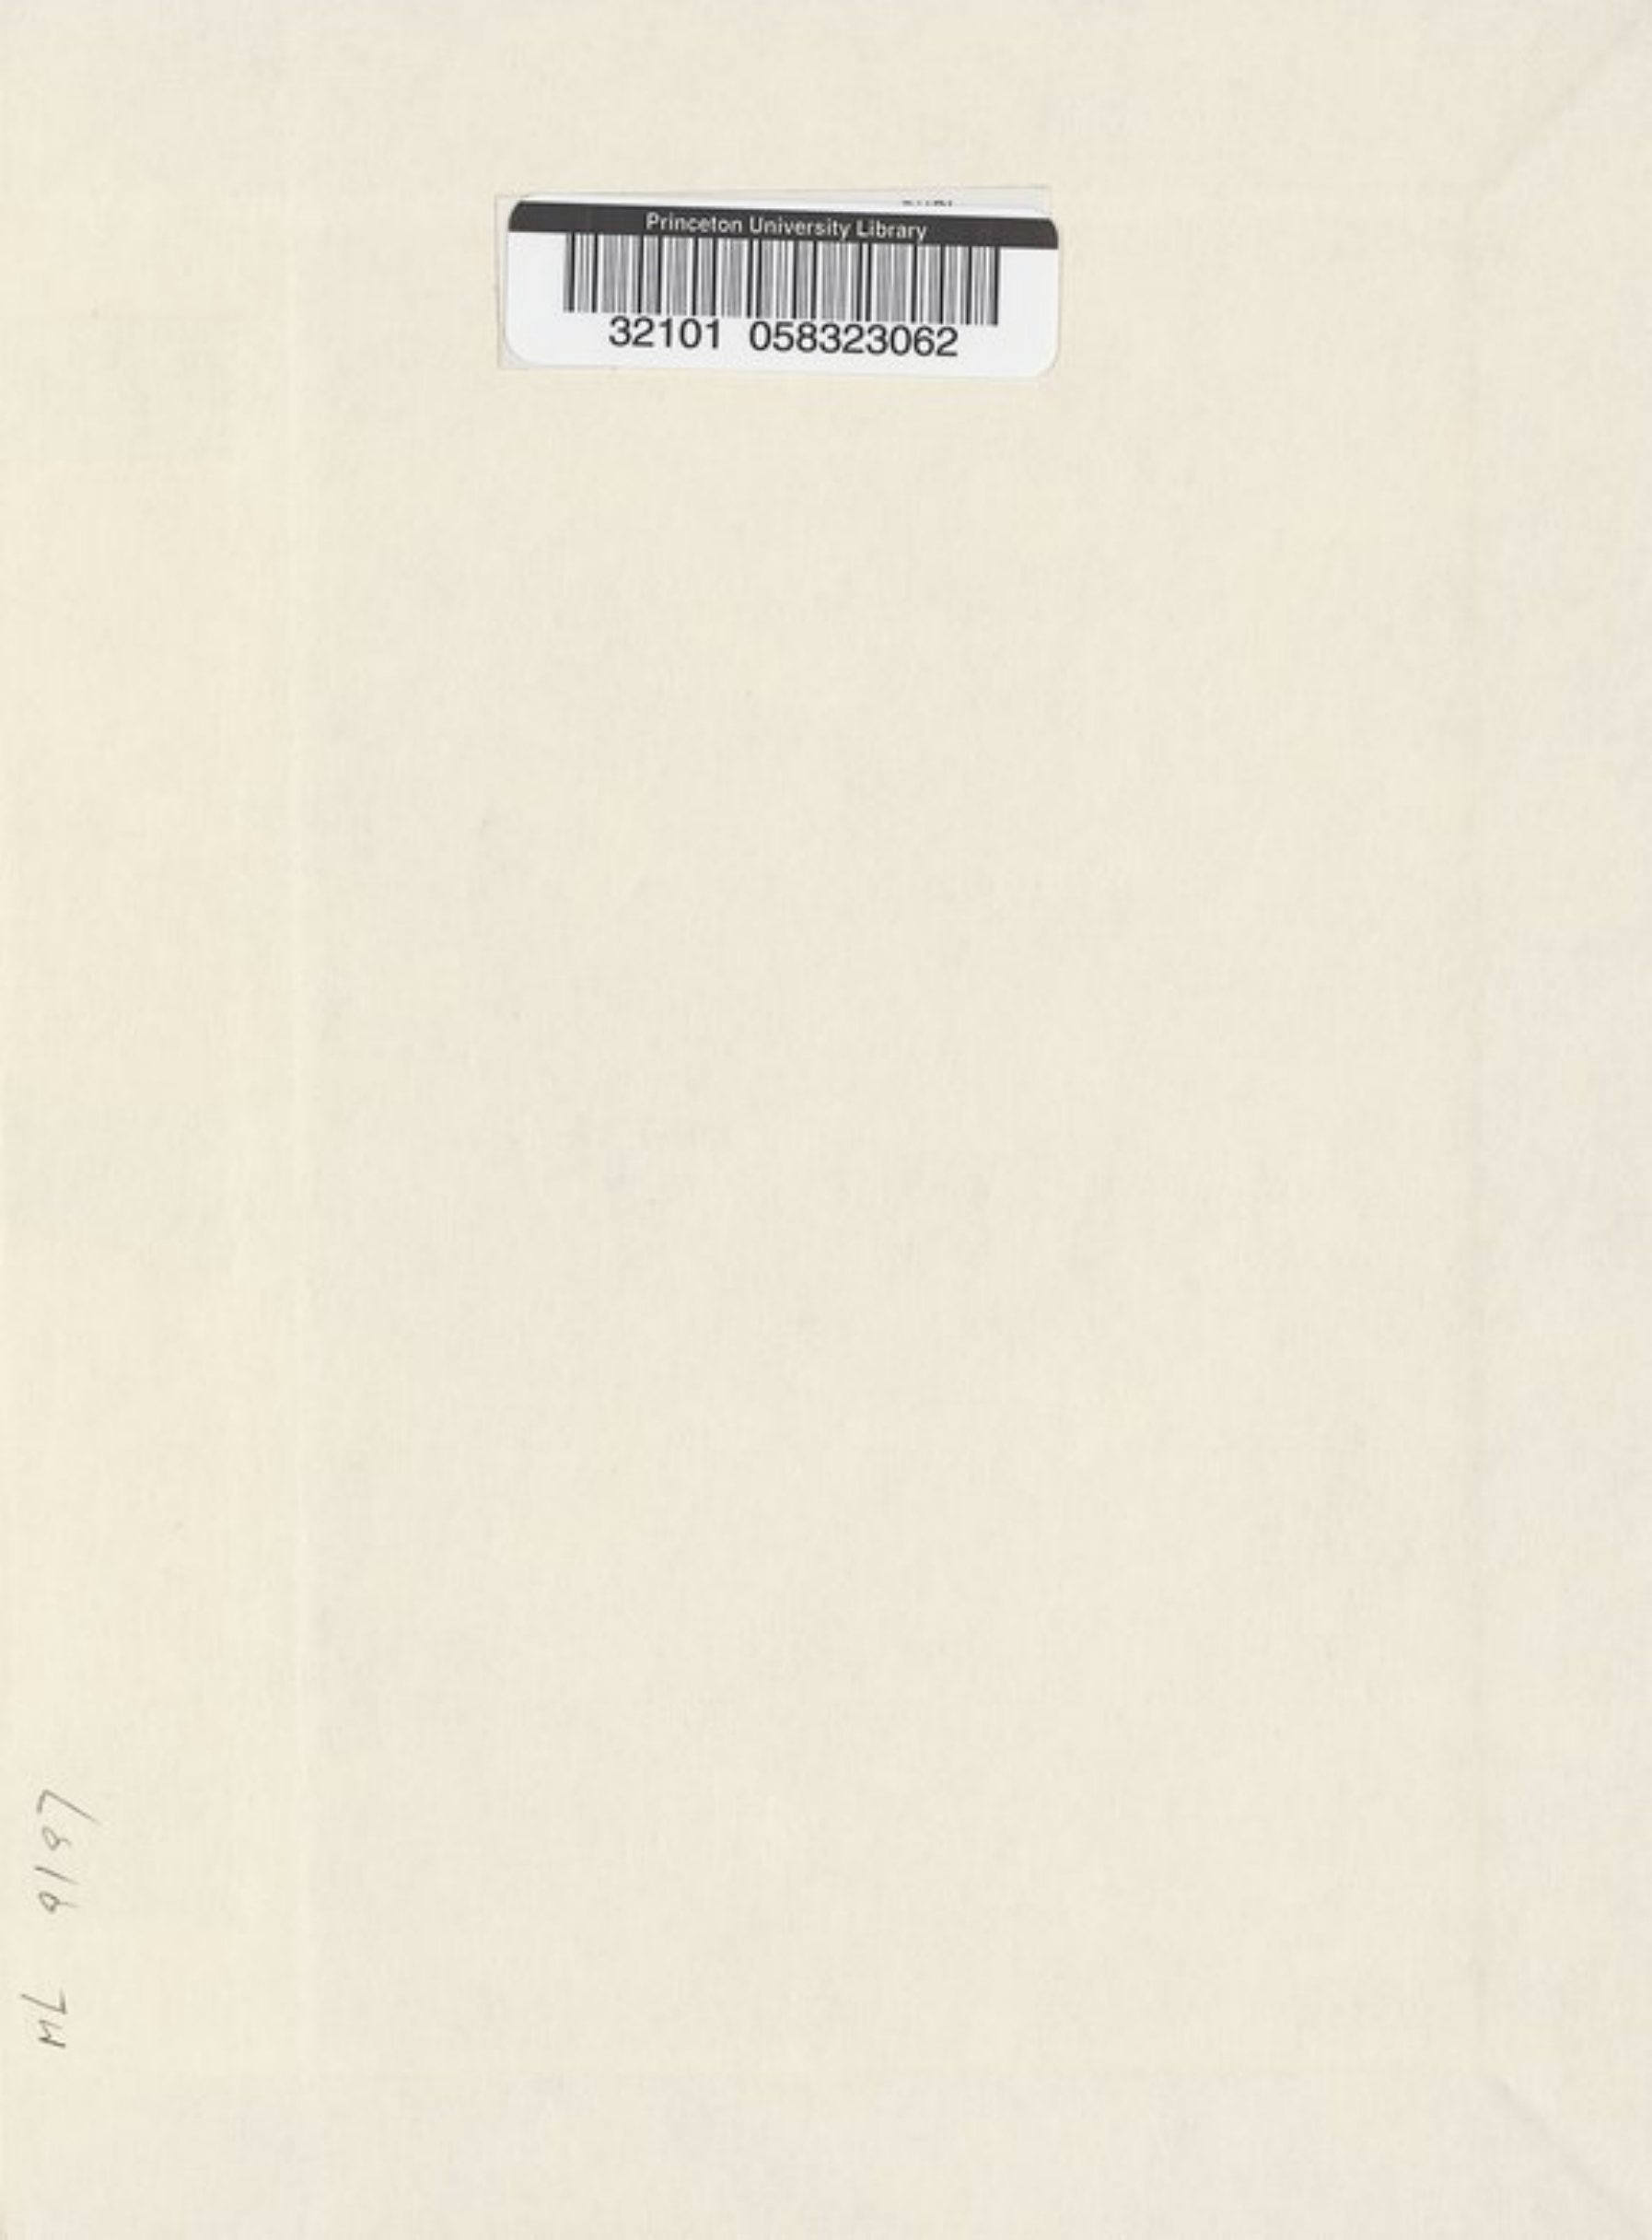 Princeton University Library
32101 058323062
ML 9197